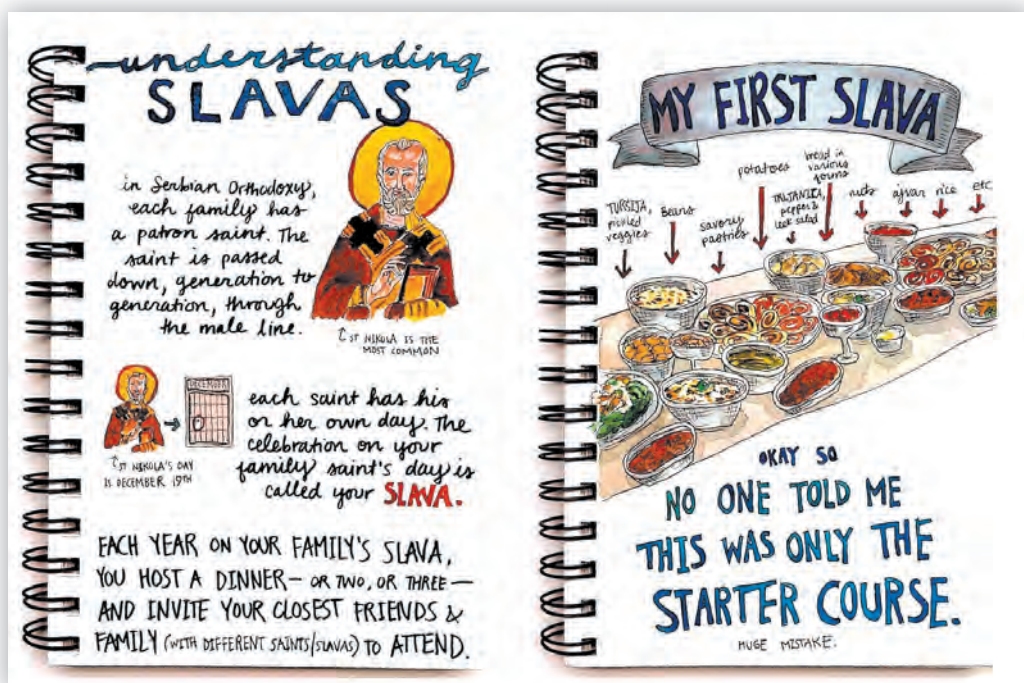 understanding
SLAVAS
in Serbian Orthodoxy,
each family has
a patron saint. The
saint is passed
down, generation to
generation, through
the male line.
ST NIKOLA IS THE
MOST COMMON
DECEMBER
ST NIKOLA'S DAY
IS DECEMBER 19TH
each saint has his
or her own day. The
celebration on your
family saint's day is
called your SLAVA.
EACH YEAR ON YOUR FAMILY'S SLAVA,
YOU HOST A DINNER — OR TWO, OR THREE —
AND INVITE YOUR CLOSEST FRIENDS &
FAMILY (WITH DIFFERENT SAINTS/SLAVAS) TO ATTEND.
MY FIRST SLAVA
TURSIJA,
pickled
veggies
Beans
savory
pastries
potatoes
pepper &
leek salad
bread in
various
forms
nuts
ajvar
rice
etc
OKAY SO
NO ONE TOLD ME
THIS WAS ONLY THE
STARTER COURSE.
HUGE MISTAKE.